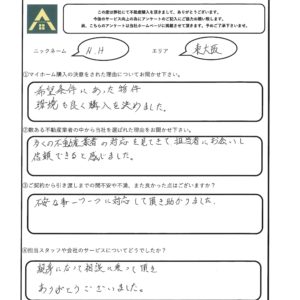 この度は弊社にて不動産購入を頂きまして、ありがとうございます。
今後のサービス向上の為にアンケートのご記入にご協力お願いします。
尚、こちらのアンケートは当社ホームページに掲載させて頂きます。予めご了承下さいませ。
ニックネーム N.H エリア 東大阪
①マイホーム購入の決意をされた理由についてお聞かせ下さい。
希望条件にあった物件
環境も良く購入を決めました。
②数ある不動産業者の中から当社を選ばれた理由をお聞かせ下さい。
多くの不動産業者の対応を見てきて担当者にお会いし
信頼できると感じました。
③ご契約から引き渡しまでの間不安や不満、また良かった点はございますか?
不安な事一つ一つに対応して頂き助かりました。
④担当スタッフや会社のサービスについてどうでしたか?
親身になって相談に乗って頂き
ありがとうございました。